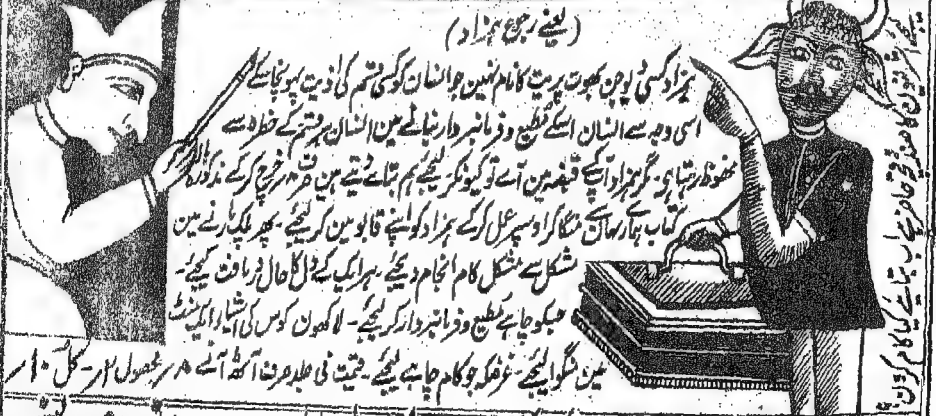 (یعنے رجوع ہمزاد)
ہمزاد کسی بھوت پریت کا نام نہین جو انسان کو کسی قسم کی اذیت پہونچا سکے
اسی وجہ سے انسان اسکے مطیع و فرمانبردار بنانے مین انسان ہر قسم کے خطرہ سے
محفوظ رہتا ہے۔ مگر ہمزاد آپکے قبضہ مین آے تو کیونکر لیجئے ہم بتاے دیتے ہین صرف ۸ر خرچ کر کے مذکورہ بالا
کتاب ہمارے یہان سے منگا کر اوسپر عمل کر کے ہمزاد کو اپنے قابو مین کر لیجئے۔ پھر پلک مارنے مین
مشکل سے مشکل کام انجام دیجئے۔ ہر ایک کے دل کا حال دریافت کیجئے۔
جسکو چاہے مطیع و فرمانبردار کر لیجئے۔ لاکھون کوس کی اشیاء ایک منٹ
مین منگوا لیجئے۔ غرضکہ جو کام چاہے لیجئے۔ قیمت فی جلد صرف آٹھ آنے ۸ر محصول ۲ر۔ کل ۱۰ر
حاضر ہے اب بتایئے کیا کام کرون